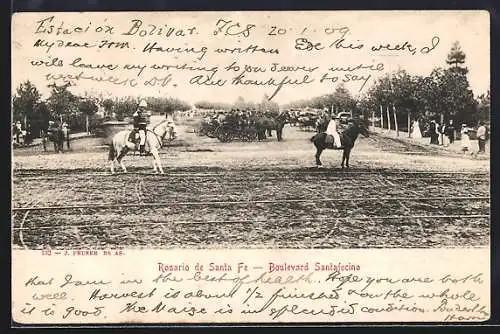 Estación Bolivar. F.C.S 20.1.09
My dear Tom. Having written Ede this week, I
will leave my writing to you Dears until
next week D.V. Are thankful to say
532 — J. PEUSER Bs AS.
Rosario de Santa Fe — Boulevard Santafecino
that I am in the best of health. Hope you are both
well. Harvest is about 1/2 finished & on the whole
it is good. The Maize is in splendid condition.